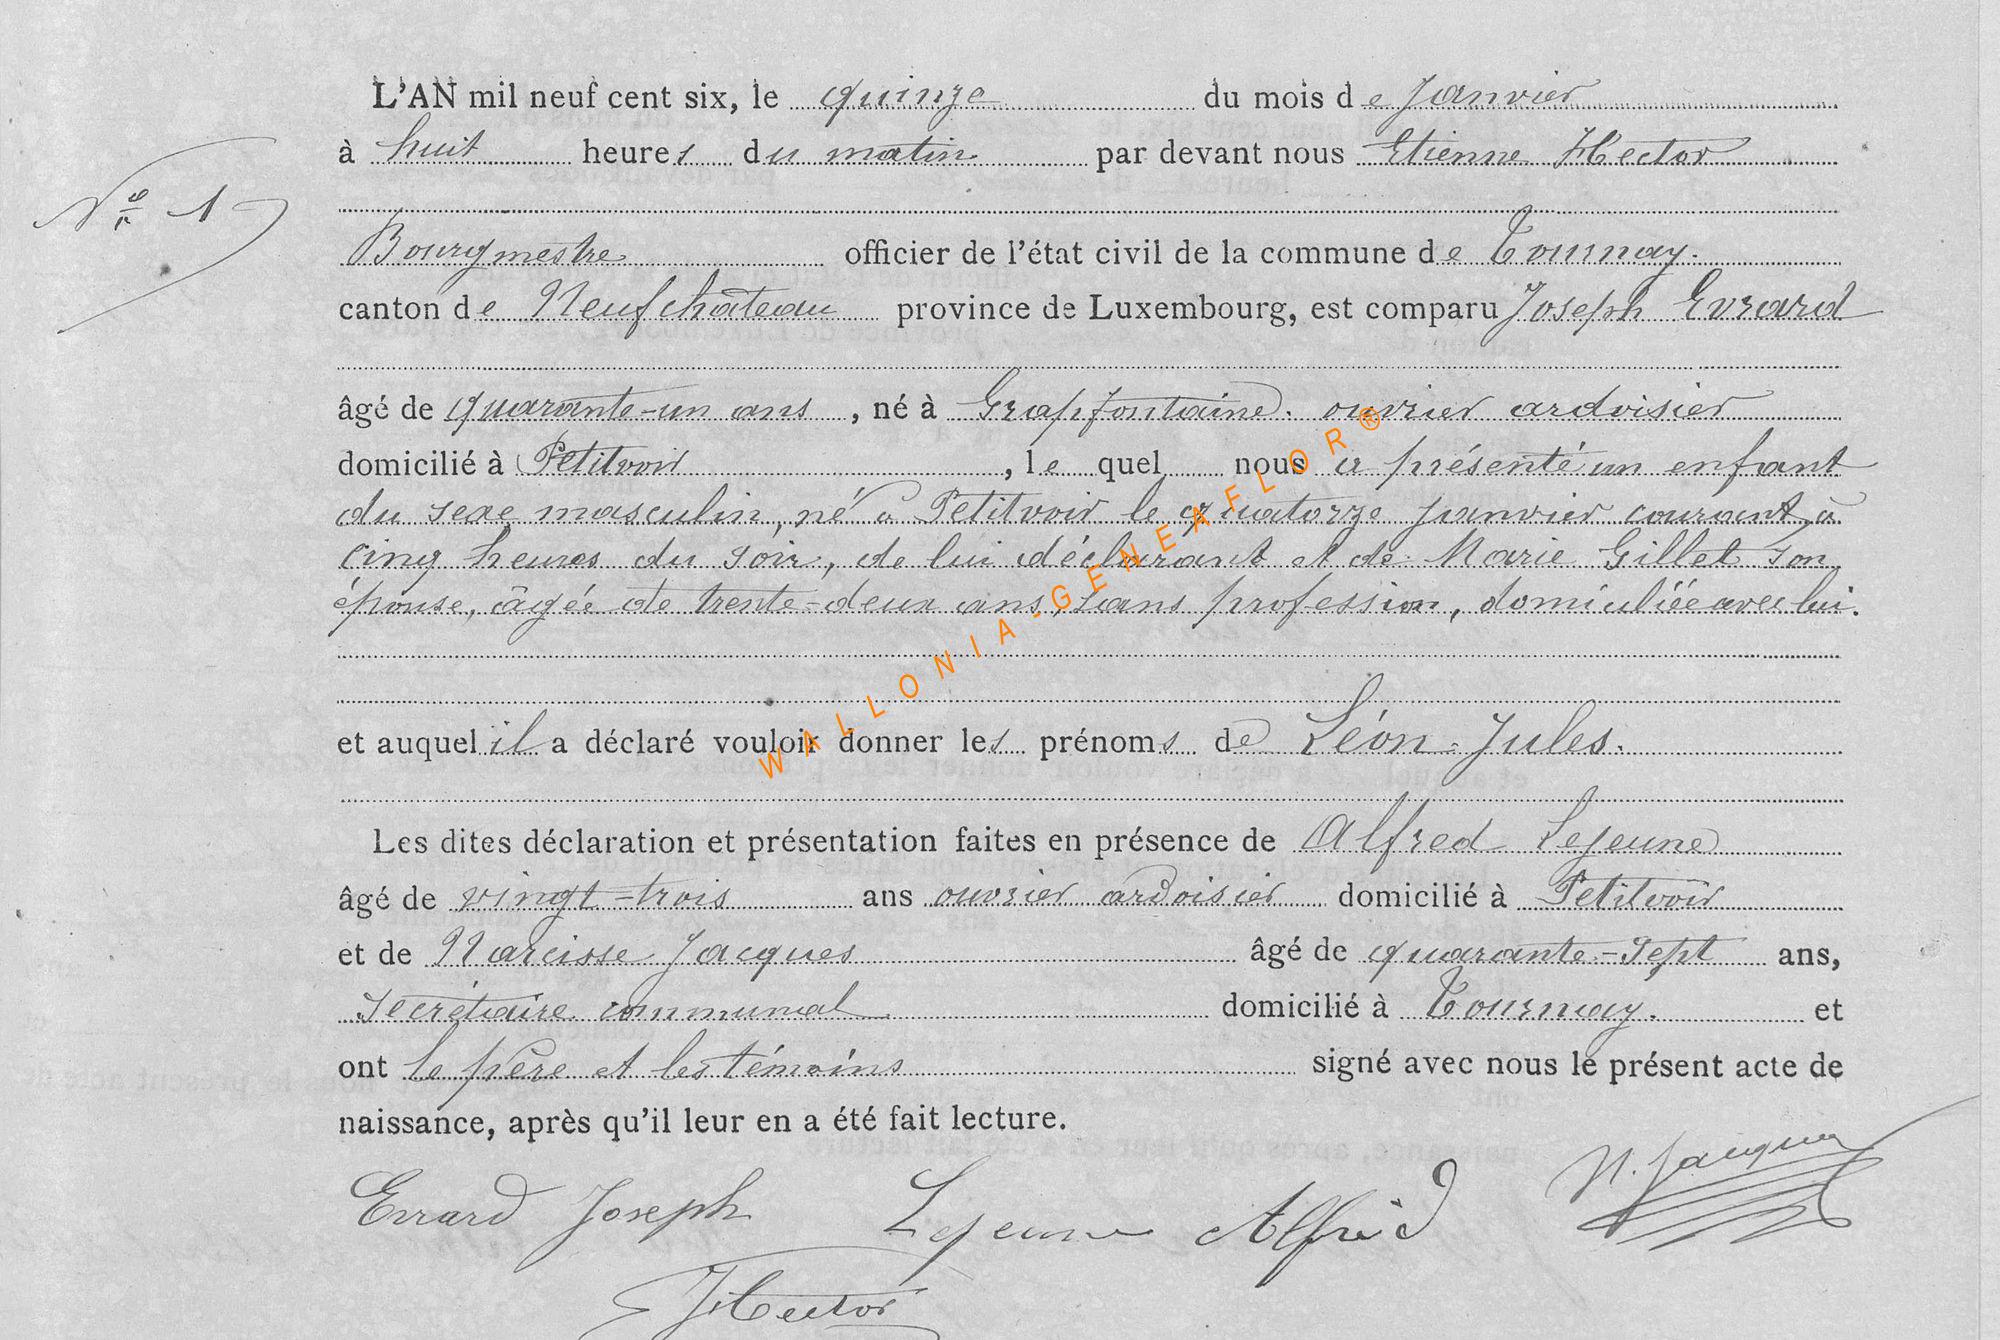 L'AN mil neuf cent six, le quinze du mois de Janvier
à huit heures du matin par devant nous Etienne Hector
Nº 1
Bourgmestre officier de l'état civil de la commune de Tournay.
canton de Neufchâteau province de Luxembourg, est comparu Joseph Evrard
âgé de quarante-un ans, né à Grapfontaine. ouvrier ardoisier
domicilié à Petitvoir, le quel nous a présenté un enfant
du sexe masculin, né à Petitvoir le quatorze janvier courant, à
cinq heures du soir, de lui déclarant et de Marie Gillet son
épouse, âgée de trente-deux ans, sans profession, domiciliée avec lui.
WALLONIA-GENEAFLOR®
et auquel il a déclaré vouloir donner les prénoms de Léon-Jules.
Les dites déclaration et présentation faites en présence de Alfred Lejeune
âgé de vingt-trois ans ouvrier ardoisier domicilié à Petitvoir
et de Narcisse Jacques âgé de quarante-sept ans,
secrétaire communal domicilié à Tournay. et
ont le père et les témoins signé avec nous le présent acte de
naissance, après qu'il leur en a été fait lecture.
Evrard Joseph Lejeune Alfred N. Jacques
Hector